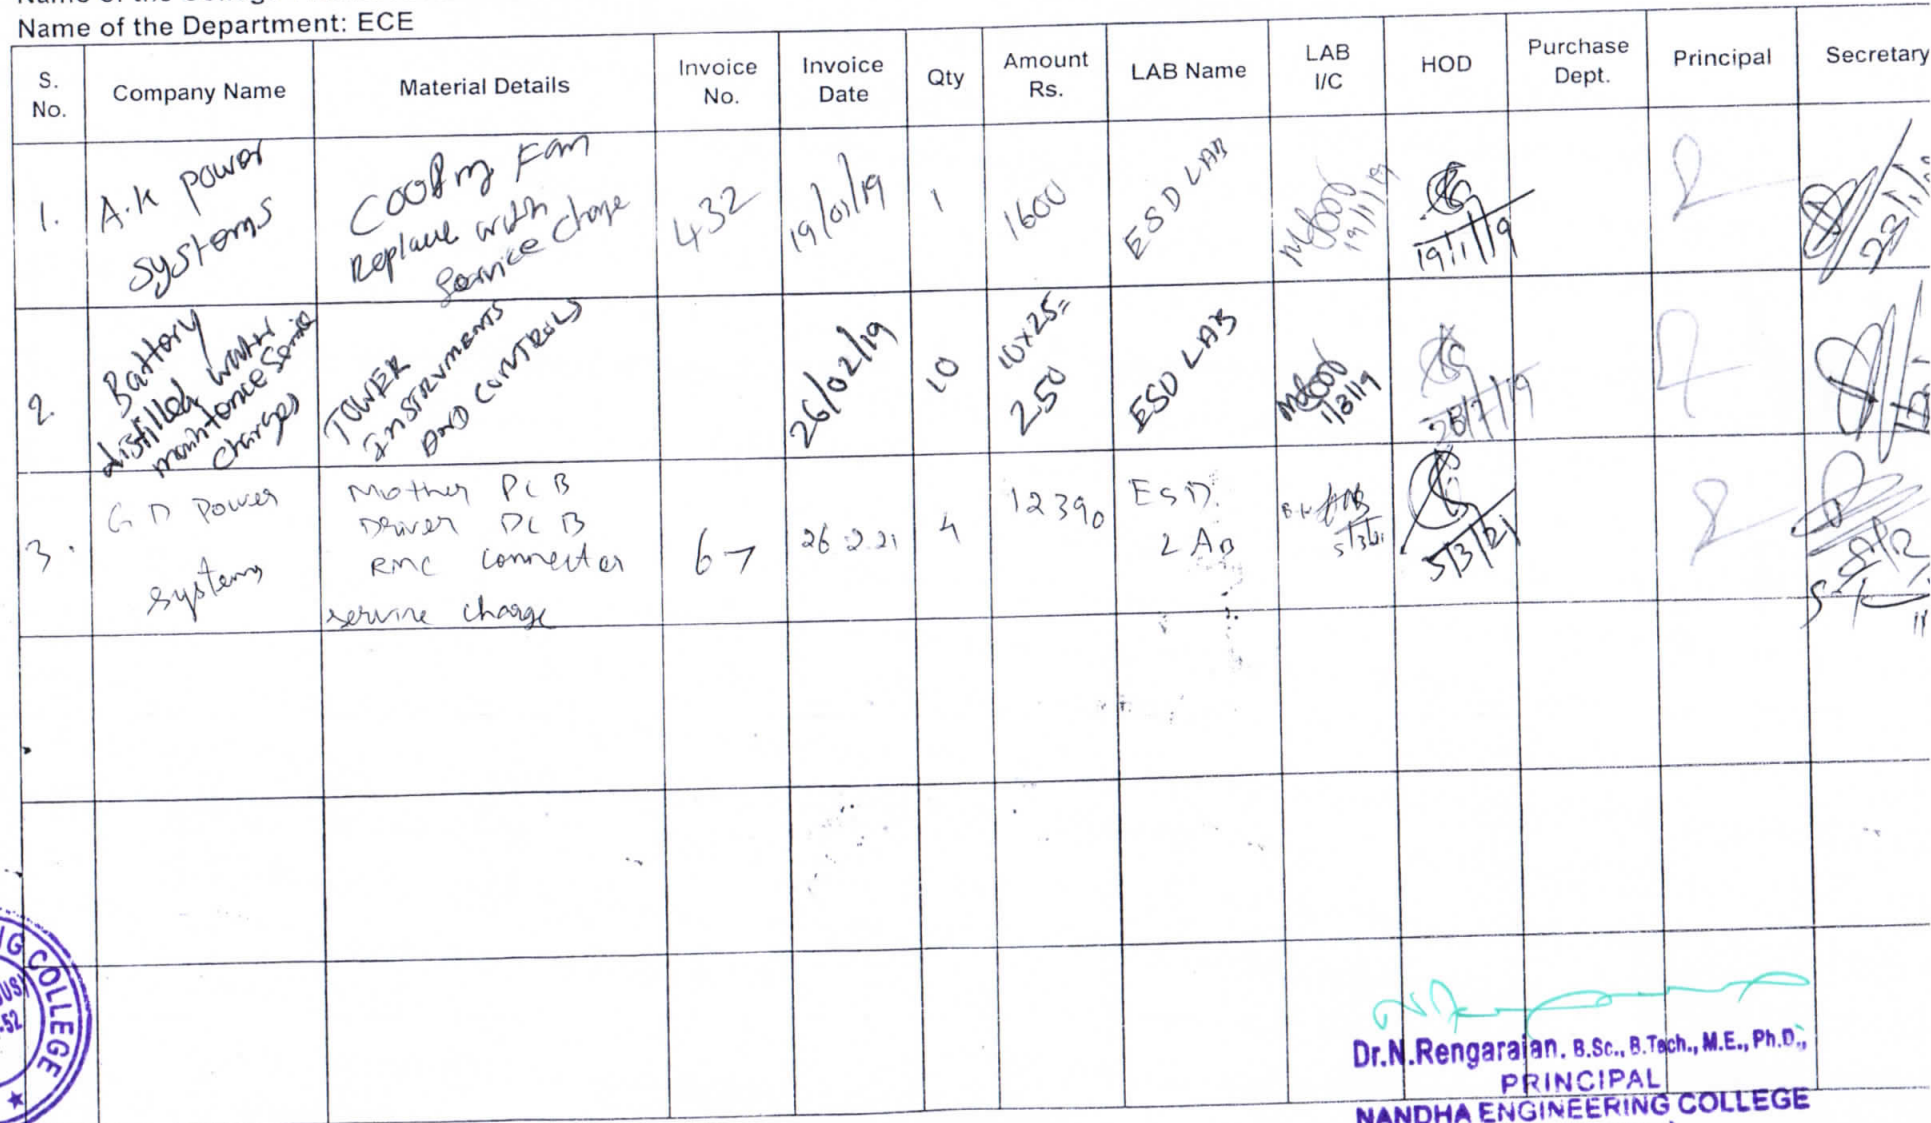 Name of the Department: ECE
S. No.
Company Name
Material Details
Invoice No.
Invoice Date
Qty
Amount Rs.
LAB Name
LAB I/C
HOD
Purchase Dept.
Principal
Secretary
1.
A.K power
systems
Cooling Fan
Replace with
Service Charge
432
19/01/19
1
1600
ESD LAB
19/1/19
19/1/19
2.
Battery
distilled water
maintence Service
charges
TOWER
INSTRUMENTS
AND CONTROLS
26/02/19
10
10x25=
250
ESD LAB
1/3/19
3.
G D Power
systems
Mother PCB
Driver PCB
RMC connector
service charge
67
26.2.21
4
12390
ESD.
LAB
5/3/21
5/3/21
COLLEGE
Dr.N.Rengarajan. B.Sc., B.Tech., M.E., Ph.D.,
PRINCIPAL
NANDHA ENGINEERING COLLEGE